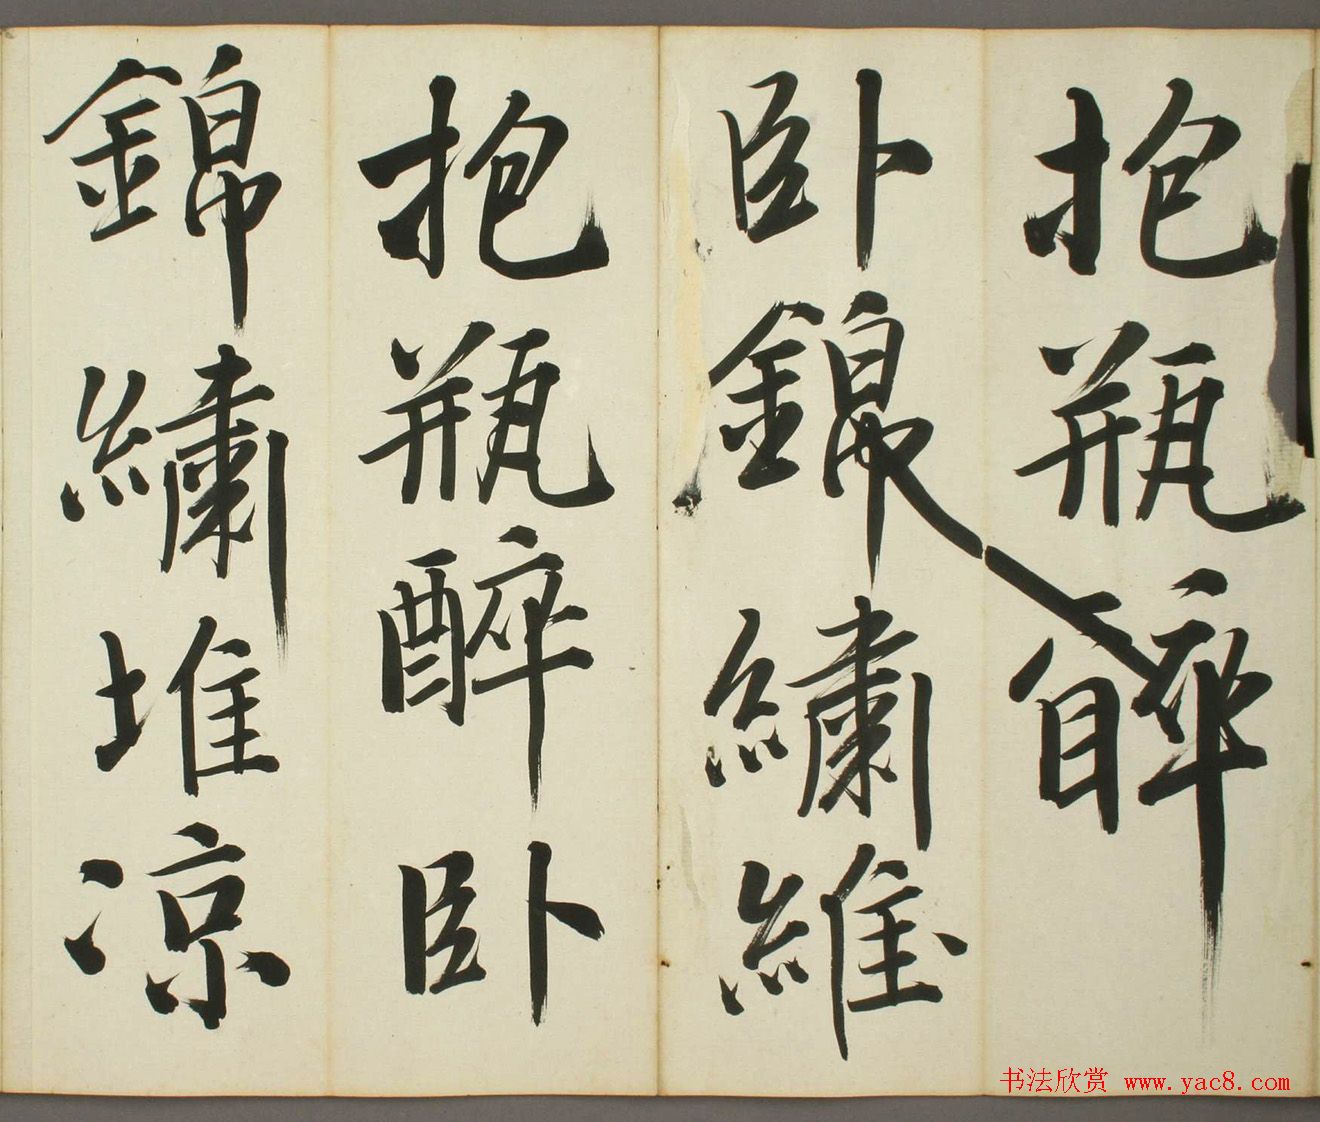 抱瓶醉
卧錦繡維
抱瓶醉卧
錦繡堆凉
书法欣赏 www.yac8.com